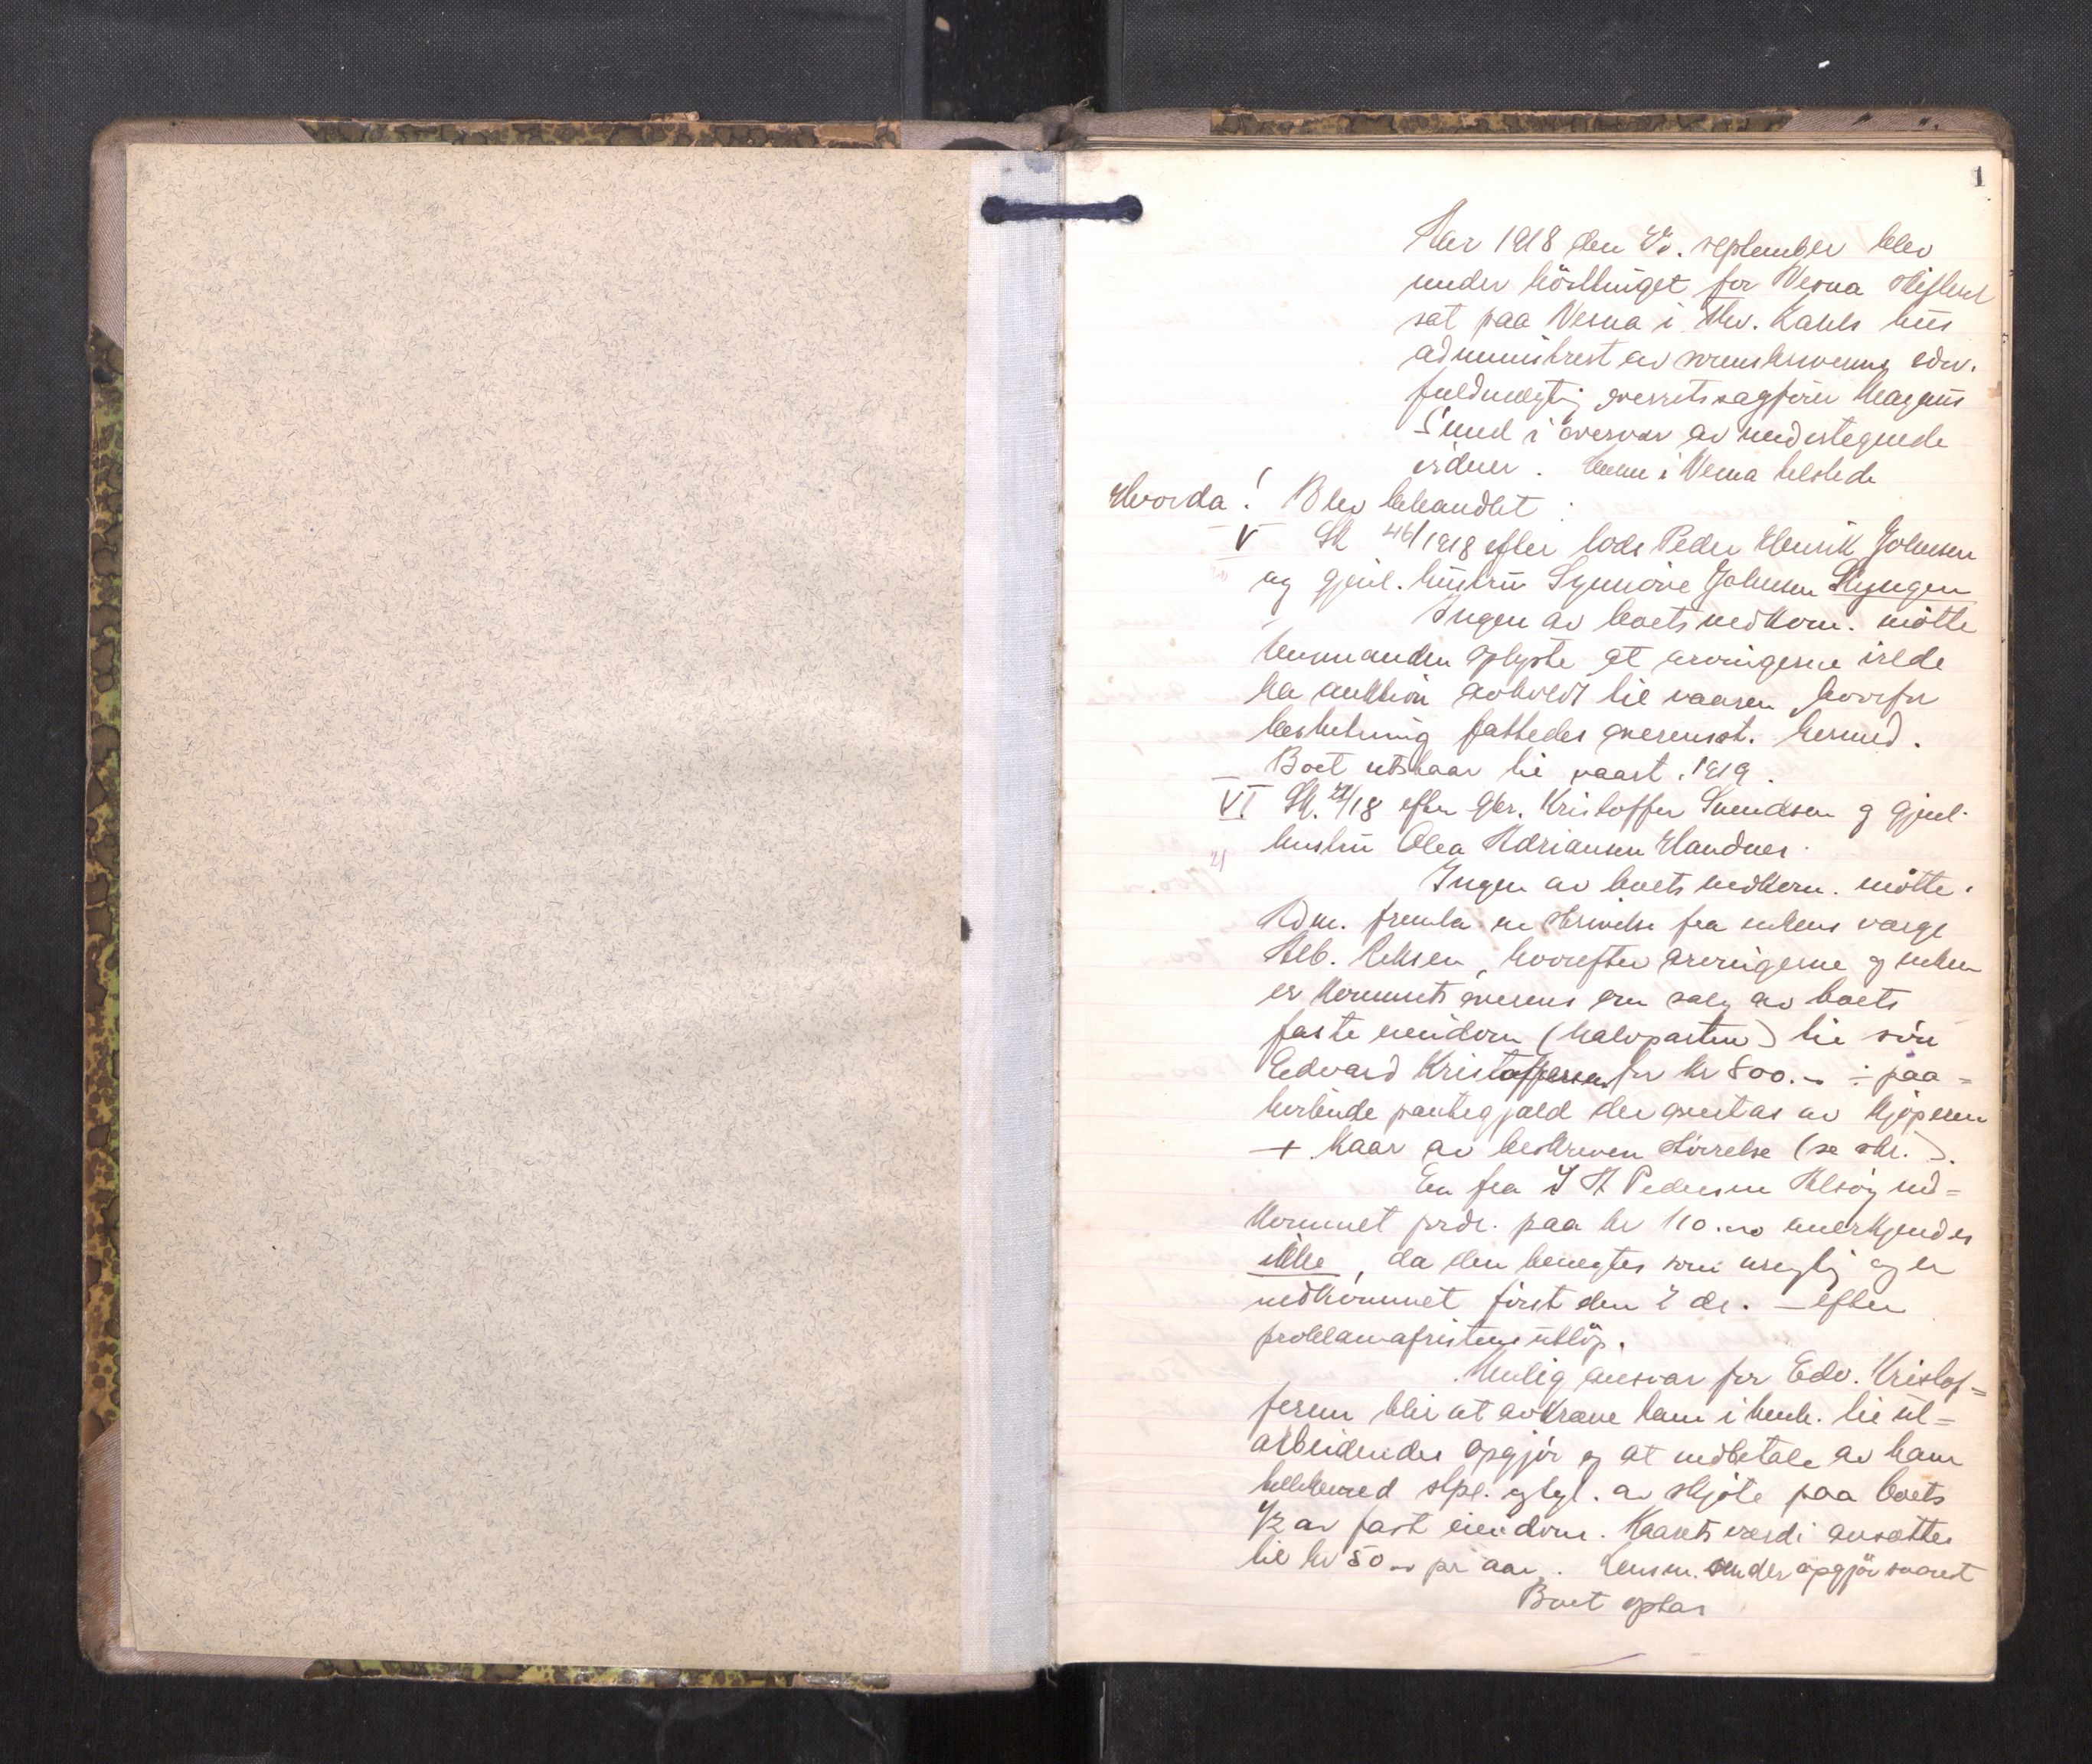 1
Aar 1918 den september blev
under hösttinget for Vevna skifteret
sat paa Vevna i Thv. Kahls hus
administrert av sorenskriverens edsv.
fuldmægtig overretssagfører Magnus
Sund i overvær av undertegnede
vidner. Lensm i Vevna tilstede
Hvorda! Blev behandlet:
V Sk 46/1918 efter lods Peder Henrik Johnsen
og gjenl. hustru Synnöve Johnsen
Ingen av boets vedkom. mötte
lensmanden oplyste at arvingerne vilde
ha auktion avholdt til vaaren hvorfor
beslutning fattedes overensst. hermed.
Boet utstaar til vaart. 1919.
VI Sk. /18 efter Gbr. Kristoffer Svendsen og gjenl.
hustru Olea Adriansen Handnes.
21
Ingen av boets vedkom. mötte.
Adm. fremla en skrivelse fra enkens værge
Alb. hvorefter arvingerne og enken
er kommet overens om salg av boets
faste eiendom (halvparten) til sön
Edvard Kristoffersen for kr 800.- ÷ paa-
heftende pantegjæld der overtas av kjöperen
+ kaar av beskreven störrelse (se skr.).
En fra J A Pedersen Alsöy ind-
kommet fordr. paa kr 110.00 anerkjendes
ikke, da den benegtes som urigtig og er
indkommet först den 2 ds. - efter
proklamafristens utlöp.
Mulig ansvar for Edv. Kristof-
fersen blir at avkræve ham i henh. til ut-
arbeidendes opgjör og at indbetale av ham
tillikemed stpl. og tgl. av skjöte paa boets
1/2 av fast eiendom. Kaarets værdi ansættes
til kr 50.00 pr aar. Lensm. sender opgjör snarest
Boet optas